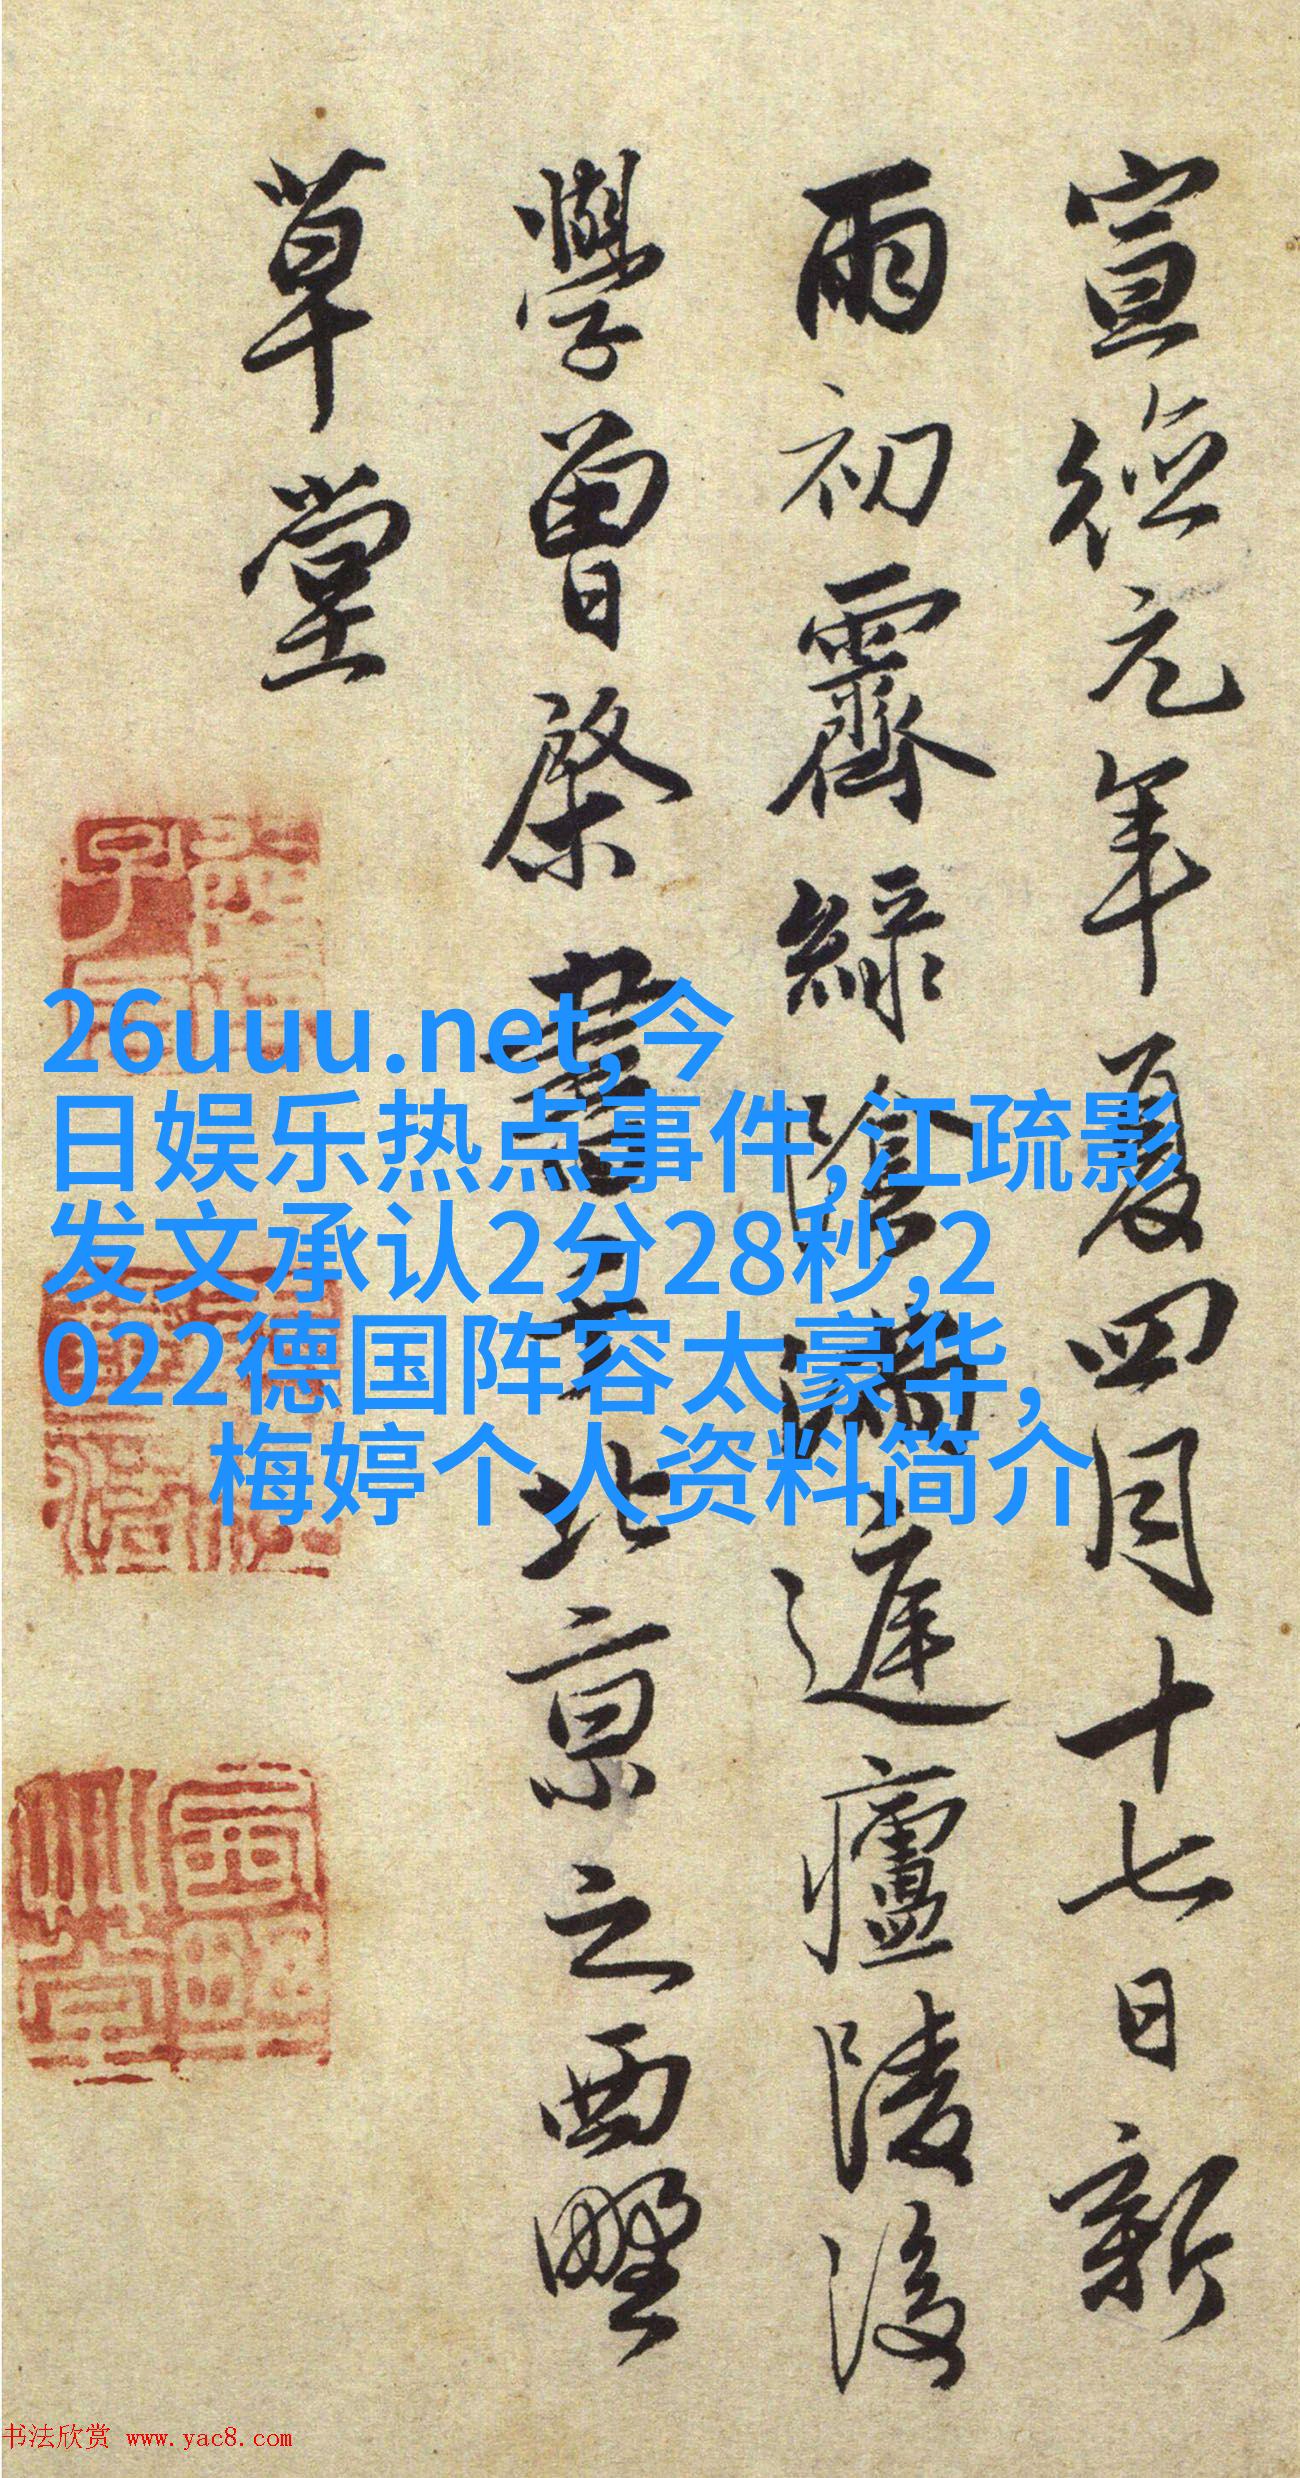 宣德元年夏四月十七日新
雨初霽綠陰滿遲廬陵後
學曾棨書于北京之西墅
草堂
26uuu.net,今
日娱乐热点事件,江疏影
发文承认2分28秒,2
022德国阵容太豪华,
梅婷个人资料简介
书法欣赏 www.yac8.com